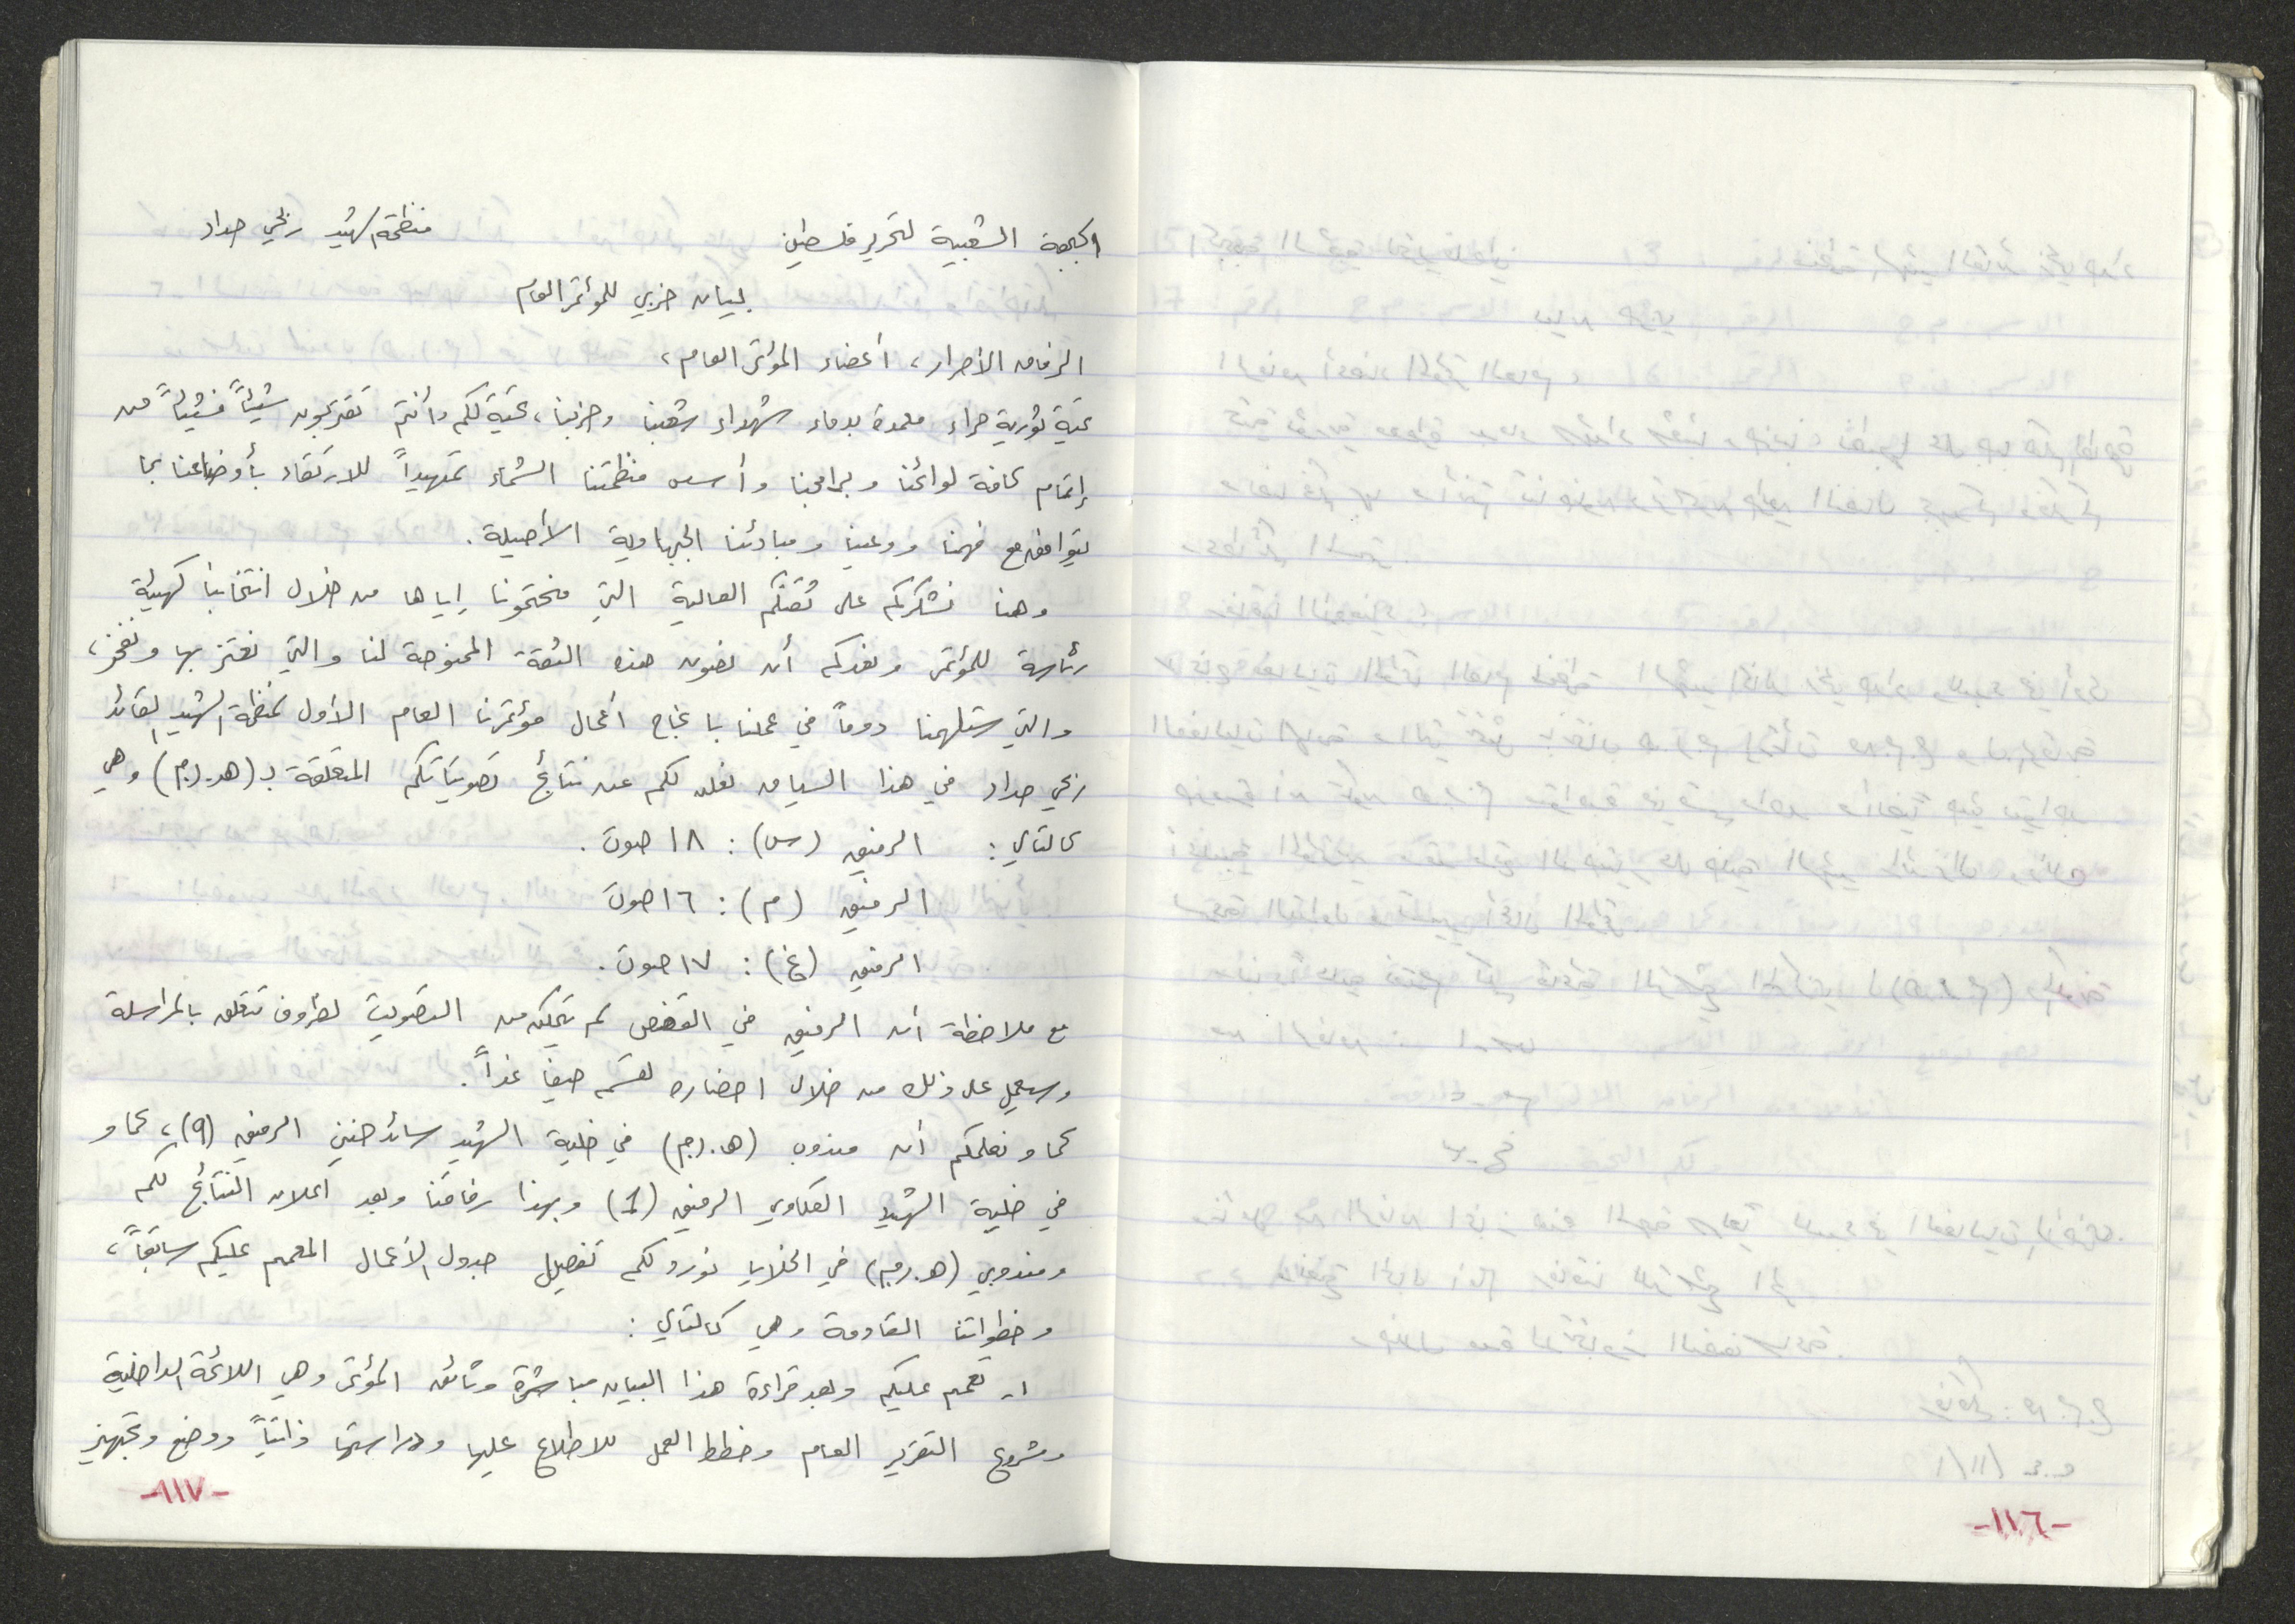 -١١٦-
الجبهة الشعبية لتحرير فلسطين منظمة الشهيد ربحي حداد
بيان حزبي للمؤتمر العام
الرفاق الأحرار، أعضاء المؤتمر العام،
تحية ثورية حمراء معمدة بدماء شهداء شعبنا وحزبنا، تحية لكم وأنتم تقتربون شيئاً فشيئاً من
إتمام كافة لوائحنا وبرامجنا وأسس منظمتنا الشماء تمهيداً للارتقاء بأوضاعنا بما
يتوافق مع فهمنا ووعينا ومبادئنا الجبهاوية الأصيلة.
وهنا نشكركم على ثقتكم العالية التي منحتمونا إياها من خلال انتخابنا كهيئة
رئاسة للمؤتمر ونعدكم أن نصون هذه الثقة الممنوحة لنا والتي نعتز بها ونفخر،
والتي ستلهمنا دوماً في عملنا بانجاح أعمال مؤتمرنا العام الأول لمنظمة الشهيد القائد
ربحي حداد في هذا السياق نعلن لكم عن نتائج تصويتاتكم المتعلقة بـ (هـ.ر.م) وهي
كالتالي: الرفيق (س): ١٨ صوت.
الرفيق (م): ١٦ صوت
الرفيق (غ): ١٧ صوت.
مع ملاحظة أن الرفيق في القفص لم يتمكن من التصويت لظروف تتعلق بالمراسلة
وسنعمل على ذلك من خلال احضاره لقسم حيفا غداً.
كما ونعلمكم أن مندوب (هـ.ر.م) في خلية الشهيد سائد حنني الرفيق (٩)، كما و
في خلية الشهيد العكاوي الرفيق (1) وبهذا رفاقنا وبعد اعلان النتائج لكم
ومندوبي (هـ.ر.م) في الخلايا نورد لكم تفصيل جدول الأعمال المعمم عليكم سابقاً،
وخطواتنا القادمة وهي كالتالي:
١- نعمم عليكم وبعد قراءة هذا البيان مباشرة وثائق المؤتمر وهي اللائحة الداخلية
ومشروع التقرير العام وخطط العمل للاطلاع عليها ودراستها ذاتياً ووضع وتجهيز
-١١٧-